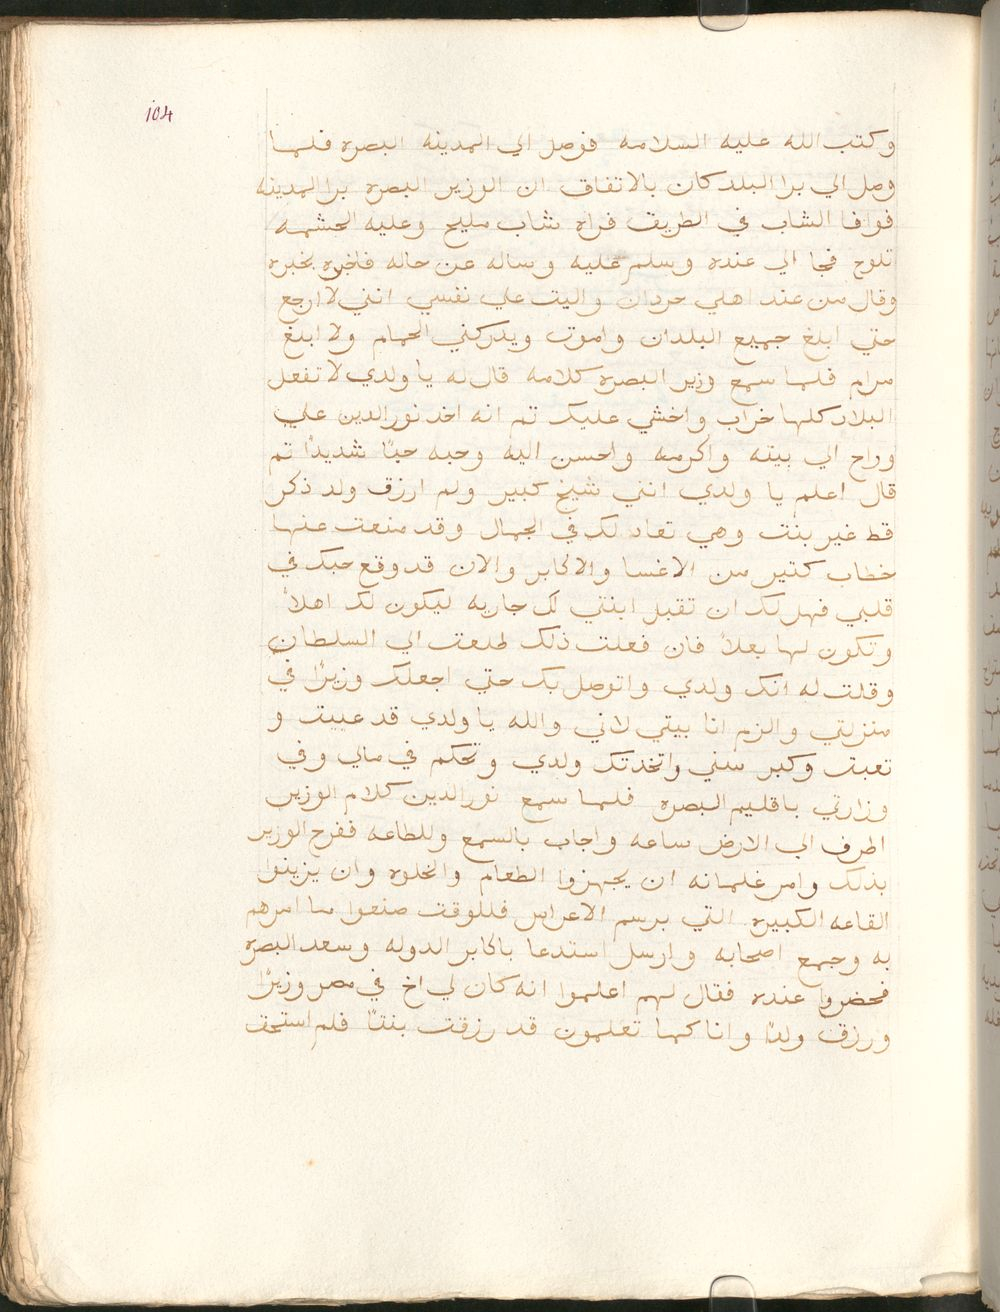 104
وكتب الله عليه السلامه فوصل الي المدينه البصره فلما
وصل الي برا البلد كان بالاتفاق ان الوزير البصره برا المدينه
فوافا الشاب في الطريق فراه شاب مليح وعليه الحشمه
تلوح فجا الي عنده وسلم عليه وساله عن حاله فاخره بخبره
وقال من عند اهلي حردان واليت علي نفسي انني لا ارجع
حتي ابلغ جميع البلدان واموت ويدركني الحمام ولا ابلغ
مرام فلما سمع وزير البصره كلامه قال له يا ولدي لا تفعل
البلاد كلها خراب واخشي عليك تم انه اخد نور الدين علي
وراح الي بيته واكرمه واحسن اليه وحبه حبًا شديدًا تم
قال اعلم يا ولدي انني شيخ كبير ولم ارزق ولد ذكر
قط غير بنت وهي تعادلك في الجمال وقد منعت عنها
خطاب كتير من الاغنيا والاكابر والان قد وقع حبك في
قلبي فهل لك ان تقبل ابنتي لك جاريه ليكون لك اهلاً
وتكون لها بعلاً فان فعلت ذلك طلعت الي السلطان
وقلت له انك ولدي واتوصل بك حتي اجعلك وزيرًا في
منزلتي والزم انا بيتي لاني والله يا ولدي قد عييت و
تعبت وكبر سني واتخدتك ولدي وتحكم في مالي وفي
وزارتي باقليم البصره فلما سمع نور الدين كلام الوزير
اطرف الي الارض ساعه واجاب بالسمع وللطاعه ففرح الوزير
بذلك وامر غلمانه ان يجهزوا الطعام والخلوه وان يزينوا
القاعه الكبيره التي برسم الاعراس فللوقت صنعوا ما امرهم
به وجمع اصحابه وارسل استدعا باكابر الدوله وسعد البصره
فحضروا عنده فقال لهم اعلموا انه كان لي اخ في مصر وزيرًا
ورزق ولدًا وانا كما تعلمون قد رزقت بنتًا فلم استحق